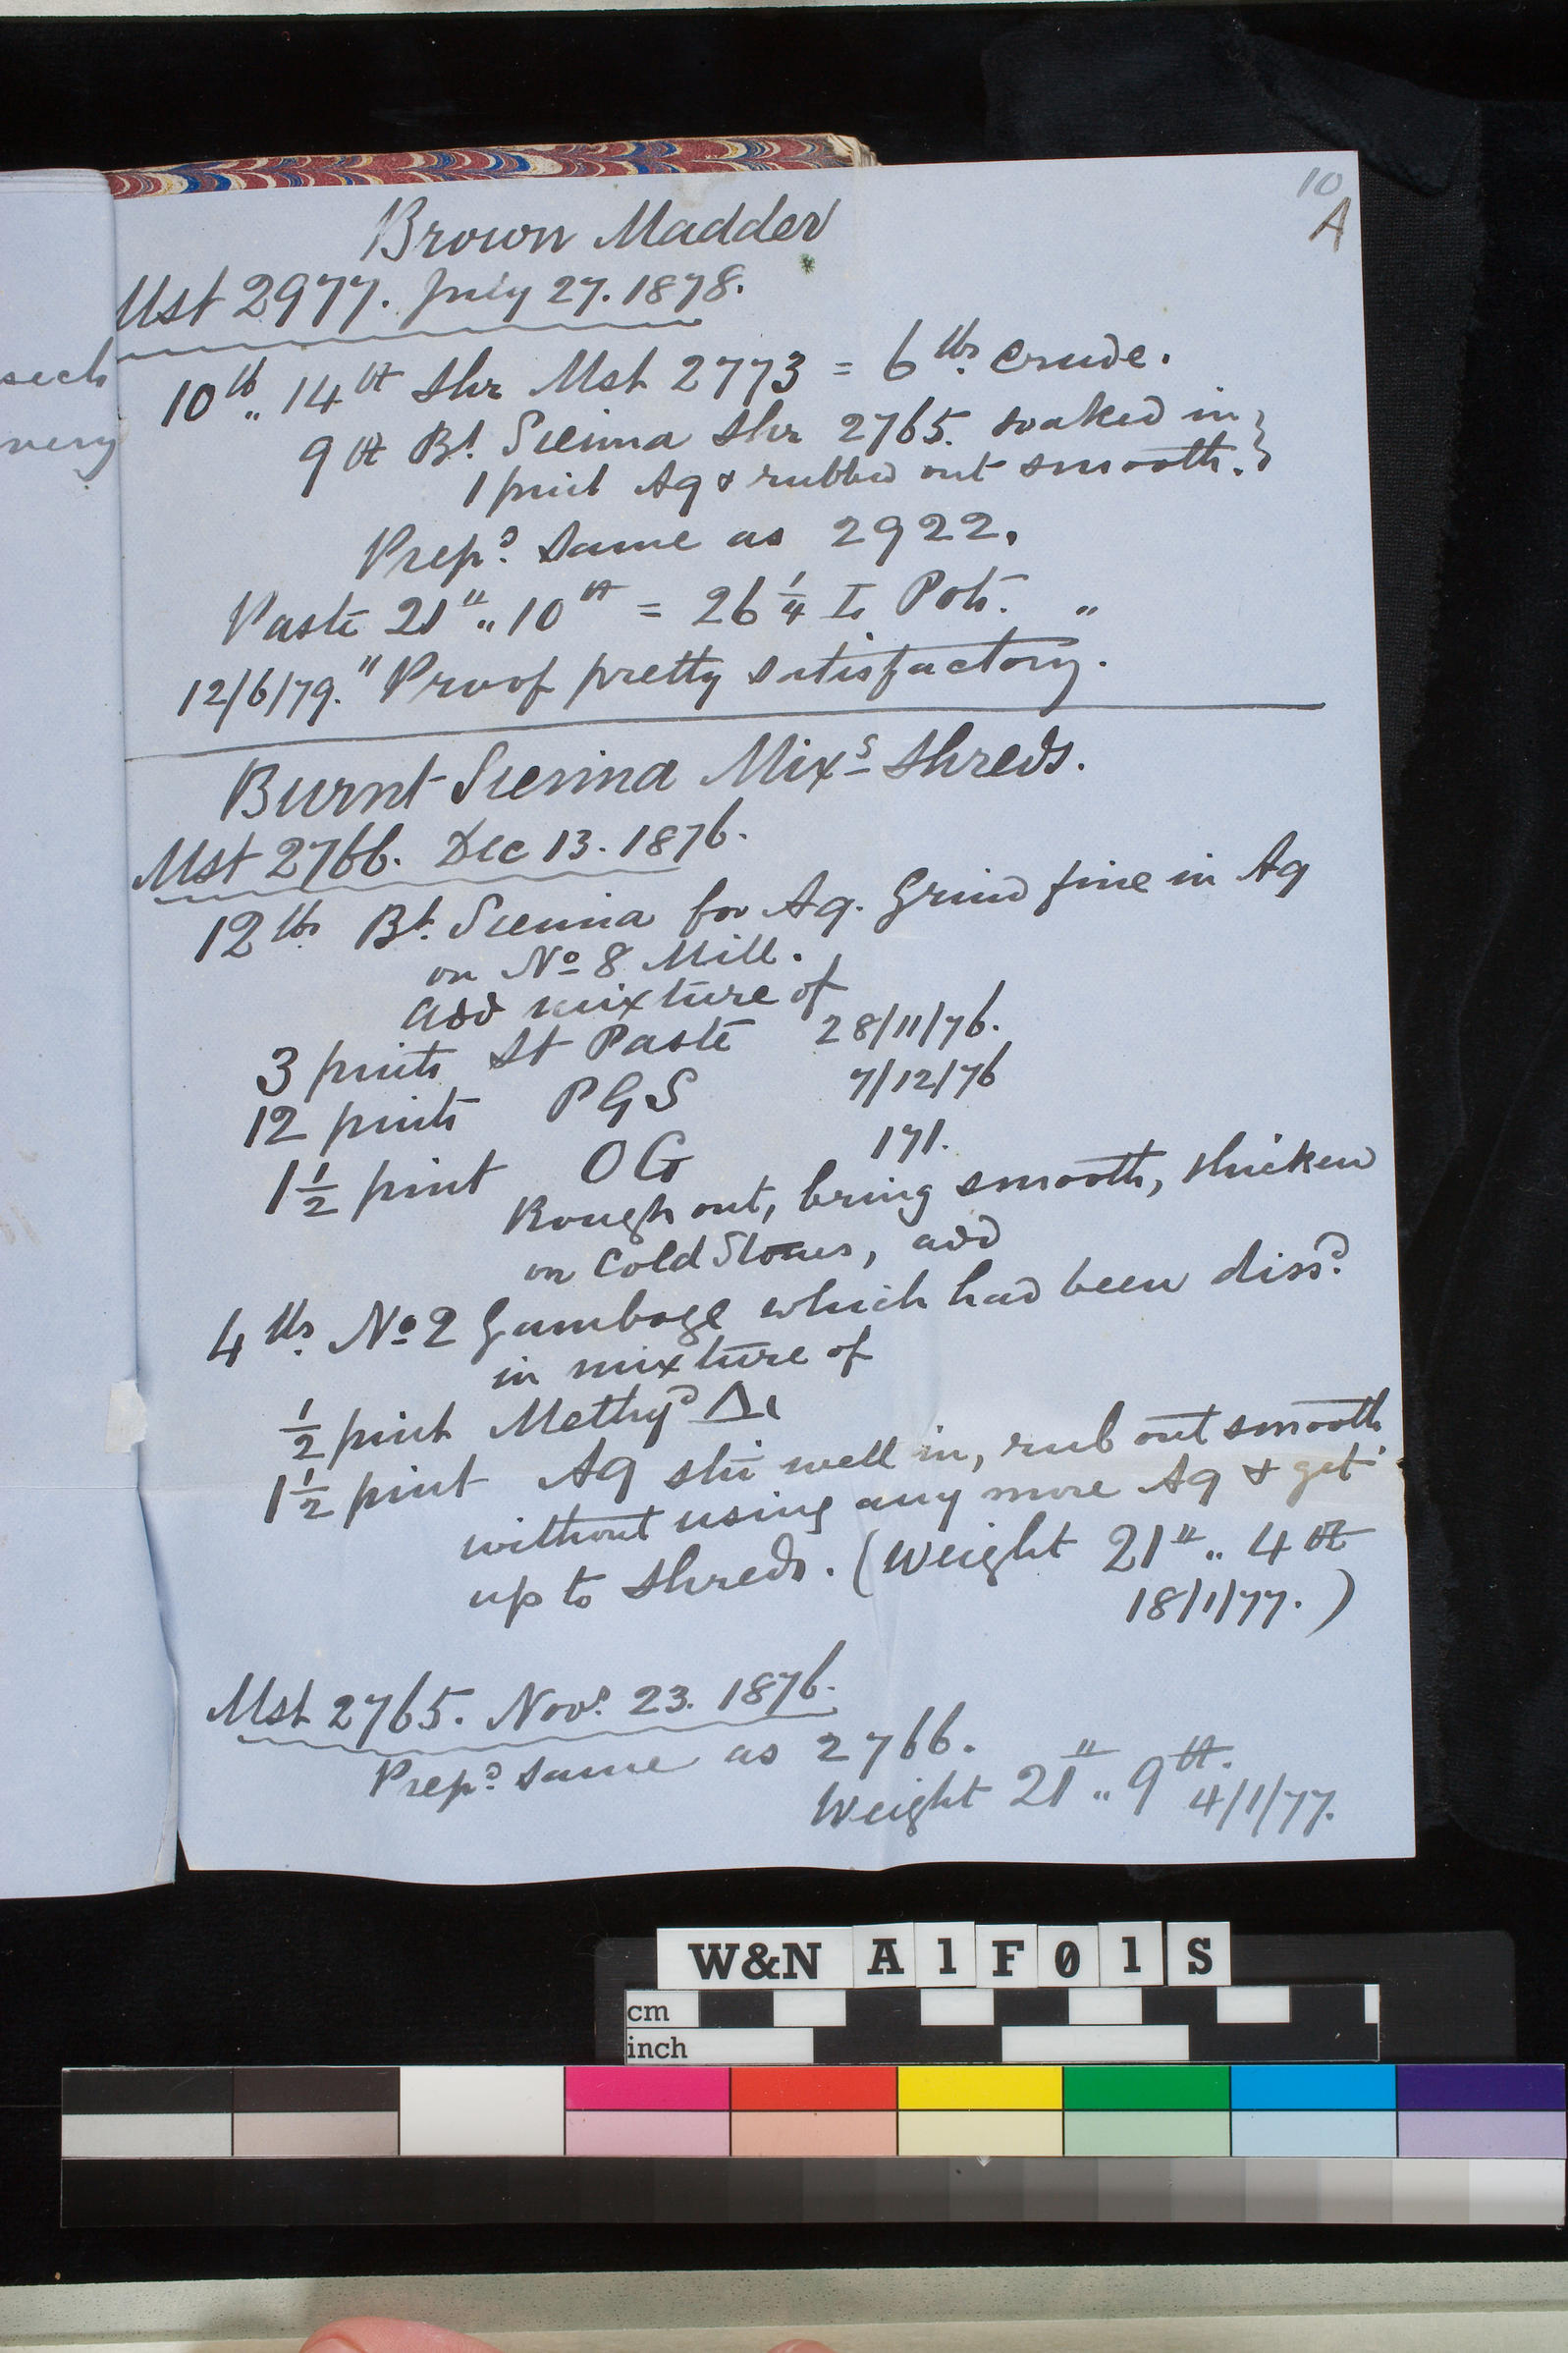 10
A
Brown Madder
Mst 2977. July 27. 1878.
10 lb.. 14 oz Shr Mst 2773 = 6 lbs. crude.
9 oz Bt. Sienna Shr 2765. soaked in
1 pint Aq & rubbed out smooth.
Prepd. Same as 2922.
Paste 21 lb.. 10 oz = 26 1/4 Pots. "
12/6/79. "Proof pretty satisfactory.
Burnt Sienna Mixs Shreds.
Mst 2766. Dec 13. 1876.
12 lbs. Bt. Sienna for Aq. Grind fine in Aq
on No 8 Mill.
add mixture of
3 pints St Paste 28/11/76.
12 pints PGS 7/12/76
1 1/2 pint OG 171.
Rough out, bring smooth, thicken
on Cold Stones, add
4 lbs. No 2 Gamboge which had been dissd.
in mixture of
1/2 pint Methyd
1 1/2 pint Aq stir well in, rub out smooth
without using any more Aq & get
up to Shreds. (Weight 21 lb.. 4 oz
18/1/77.)
Mst 2765. Novr. 23. 1876.
Prepd. Same as 2766.
Weight 21 lb.. 9 oz.
4/1/77.
sech
very
W&N A1F01S
cm
inch